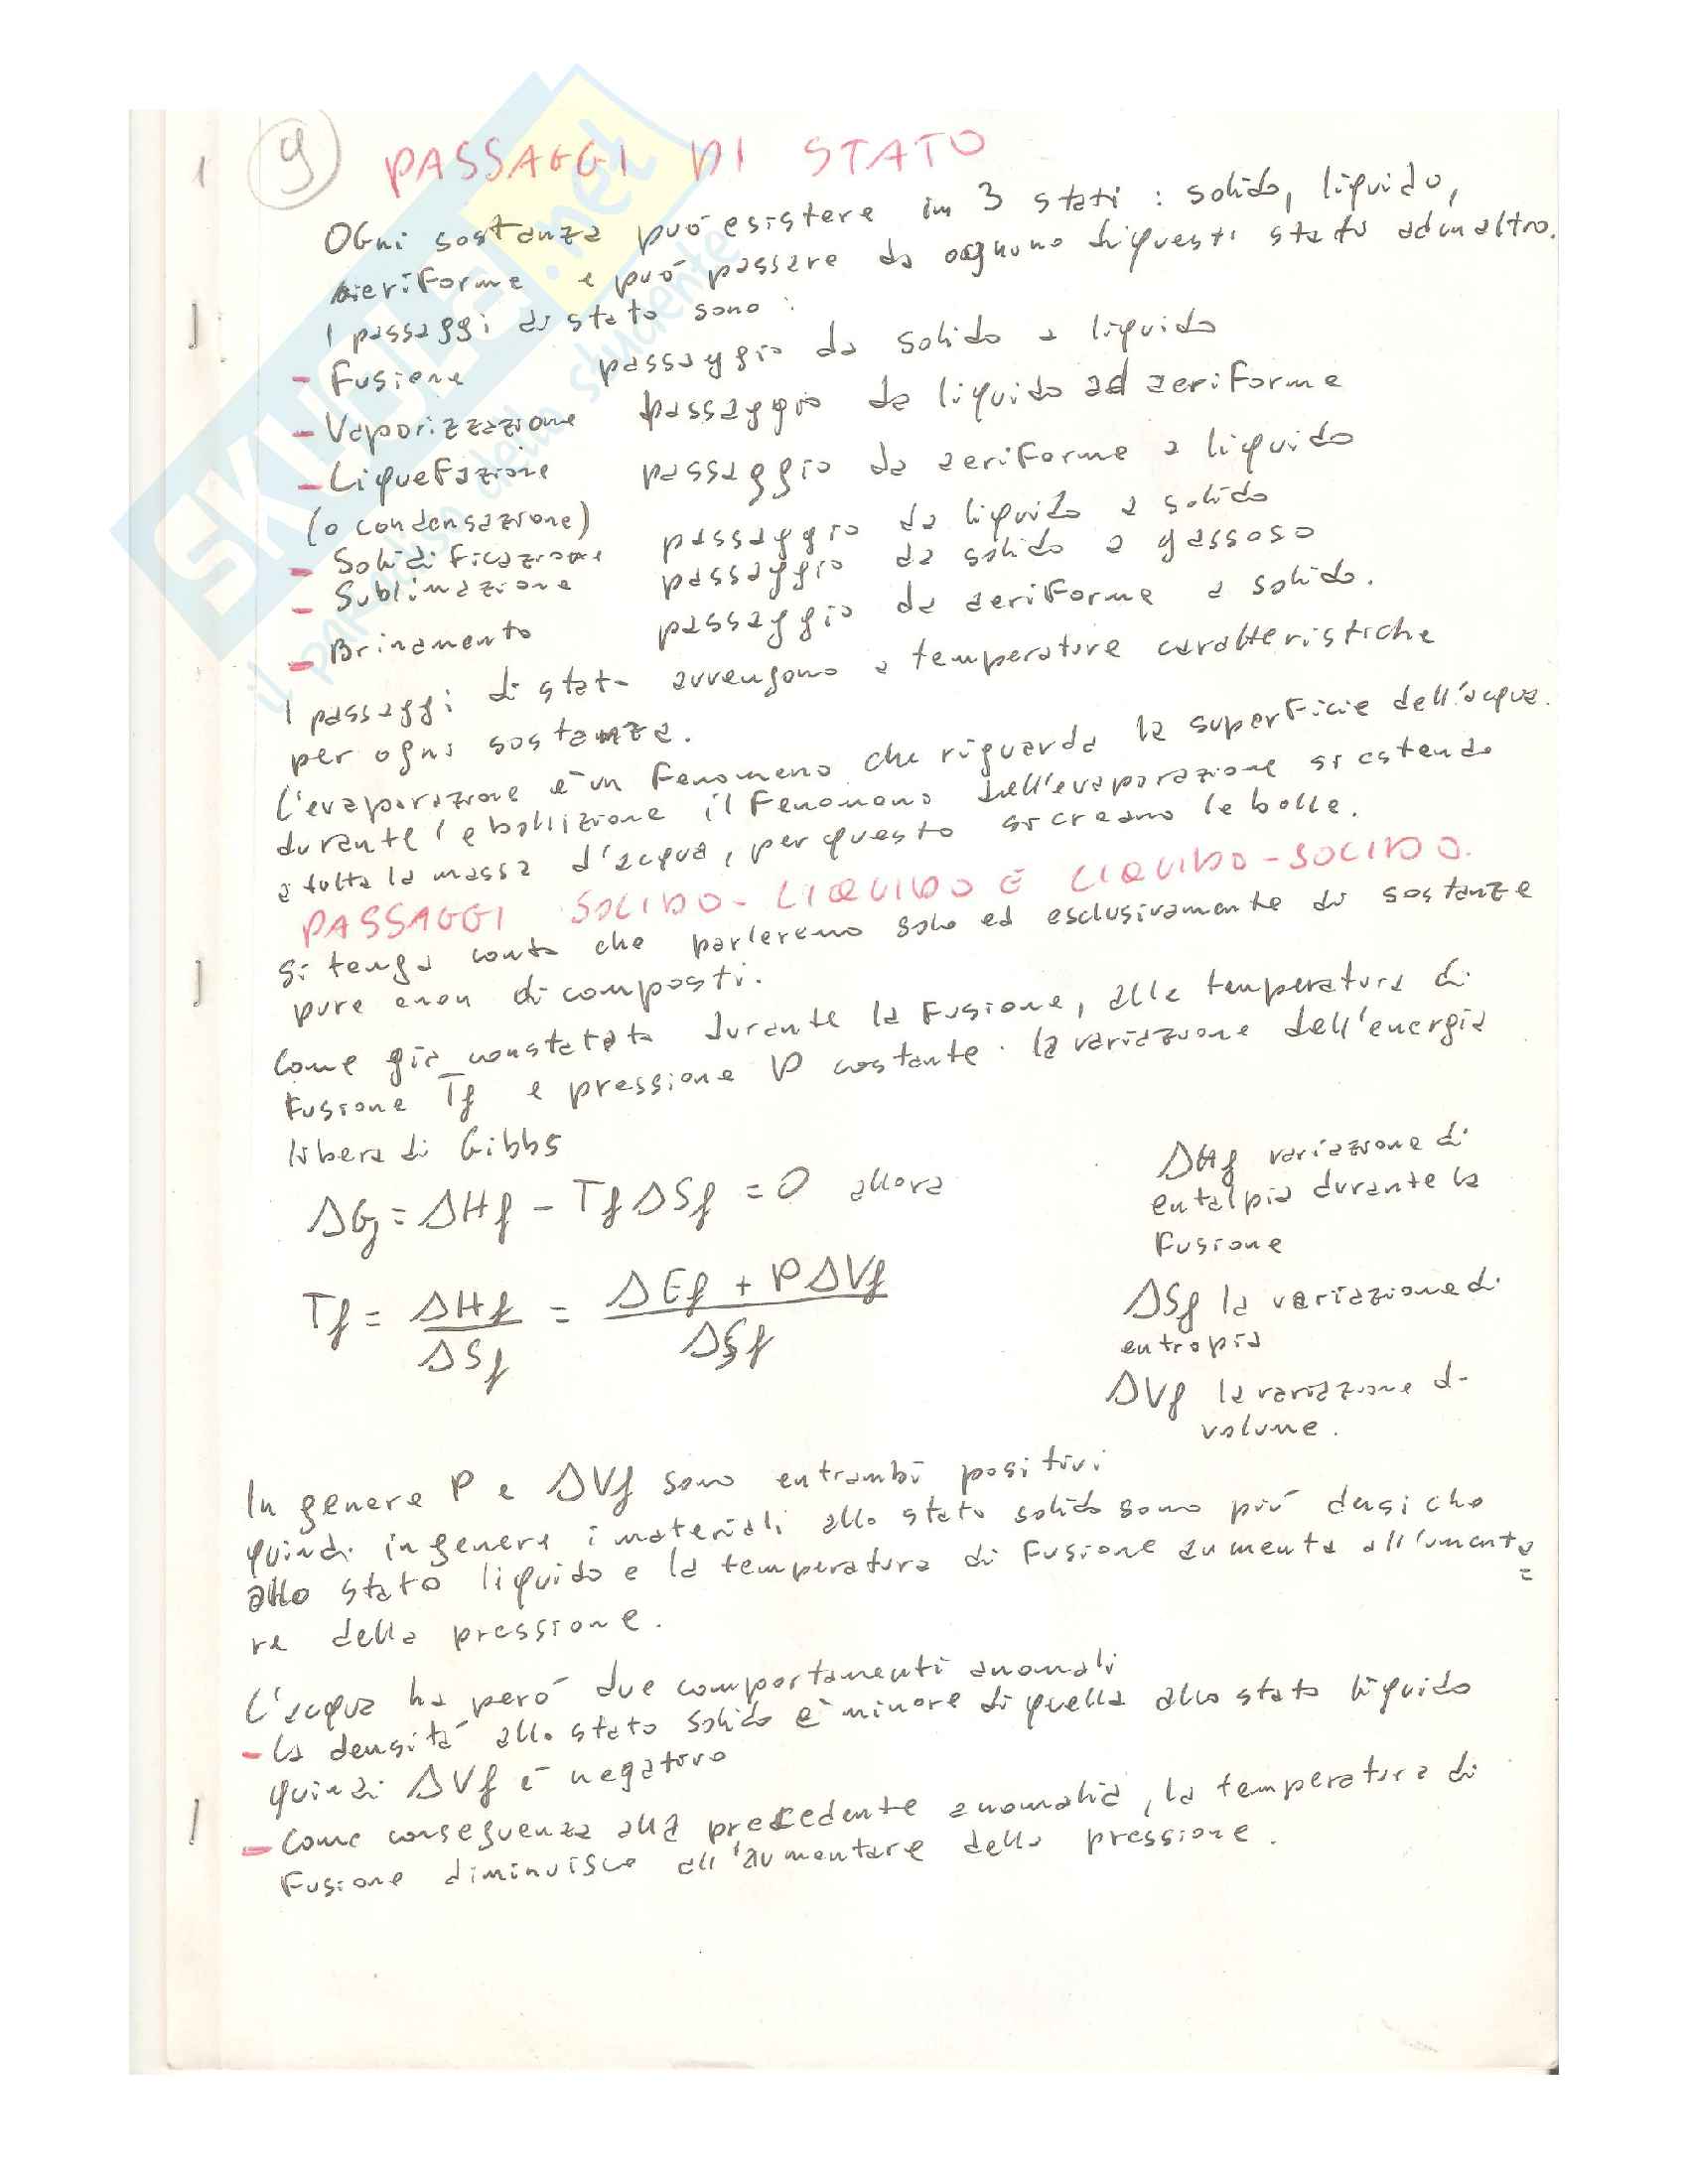 1 9 PASSAGGI DI STATO
OGni sostanza può esistere in 3 stati : solido, liquido,
aeriforme e può passare da ognuno di questi stati ad un altro.
I passaggi di stato sono :
- Fusione passaggio da solido a liquido
- Vaporizzazione passaggio da liquido ad aeriforme
- Liquefazione passaggio da aeriforme a liquido
(o condensazione)
- Solidificazione passaggio da liquido a solido
- Sublimazione passaggio da solido a gassoso
- Brinamento passaggio da aeriforme a solido.
I passaggi di stato avvengono a temperature caratteristiche
per ogni sostanza.
L'evaporazione è un Fenomeno che riguarda la superficie dell'acqua.
durante l'ebollizione il Fenomeno dell'evaporazione si estende
a tutta la massa d'acqua, per questo si creano le bolle.
PASSAGGI SOLIDO-LIQUIDO E LIQUIDO-SOLIDO.
Si tenga conto che parleremo solo ed esclusivamente di sostanze
pure e non di composti.
Come già constatato durante la Fusione, alla temperatura di
Fusione Tf e pressione P costante. la variazione dell'energia
libera di Gibbs
ΔG = ΔHf - TfΔSf = 0 allora
Tf = ΔHf / ΔSf = ΔEf + PΔVf / ΔSf
ΔHf variazione di
entalpia durante la
Fusione
ΔSf la variazione di
entropia
ΔVf la variazione di
volume.
In genere P e ΔVf sono entrambi positivi
quindi in genere i materiali allo stato solido sono più densi che
allo stato liquido e la temperatura di Fusione aumenta all'umenta=
re della pressione.
L'acqua ha però due comportamenti anomali
- la densità allo stato solido è minore di quella allo stato liquido
quindi ΔVf è negativo
- Come conseguenza alla precedente anomalia, la temperatura di
Fusione diminuisce all'aumentare della pressione.
SKUOLA.net
il paradiso dello studente